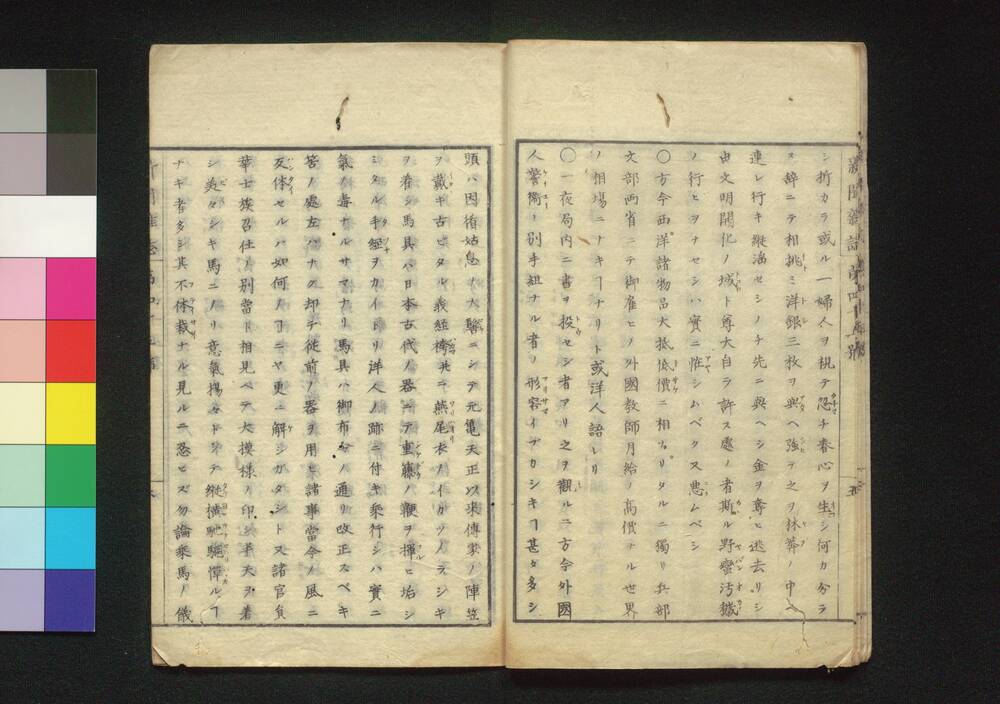 新聞雜誌 第四十五號
シ折カラ或ル一婦人ヲ視テ忽チ春心ヲ生シ何カ分ラ
ス辞ニテ相挑ミ洋銀三枚ヲ與ヘ強テ之ヲ林莽ノ中ヘ
連レ行キ縦滛セシノチ先ニ與ヘシ金ヲ奪ヒ逃去リシ
由文明開化ノ域ト尊大自ラ許ス處ノ者斯ル野蠻汚穢
ノ行ヒヲナセシハ實ニ怪シムベク又悪ムベシ
〇方今西洋諸物品大抵低價ニ相ナリタルニ獨リ兵部
文部両省ニテ御雇ヒノ外國教師月給ノ高價ナル世界
ノ相場ニナキヿナリト或洋人語レリ
〇一夜局内ニ書ヲ投セシ者アリ之ヲ觀ルニ方今外國
人警衛ノ別手組ナル者ノ形容イブカシキヿ甚タ多シ
頭ハ因循姑息ノ大髻ニシテ元亀天正以来傳家ノ陣笠
ヲ戴キ古ビタル義経袴共ニ燕尾衣ノイカツメラシキ
ヲ着シ馬具ハ日本古代ノ器ニテ重籐ノ鞭ヲ揮ヒ垢シ
ミタル手綱ヲカイトリ洋人ノ跡ニ付キ乗行シハ實ニ
氣ノ毒ナルサマナリ馬具ハ御布令ノ通リ改正スベキ
筈ノ處左ハナク却テ従前ノ器ヲ用ヒ諸事當今ノ風ニ
反体セルハ如何ノヿニヤ更ニ解シガタシト又諸官員
華士族召仕ノ別當ト相見ヘテ大模様ノ印シ半天ヲ着
シ美々シキ馬ニノリ意氣揚々トシテ縦横馳駆憚ルヿ
ナキ者多シ其不体裁ナル見ルニ忍ヒズ勿論乗馬ノ儀